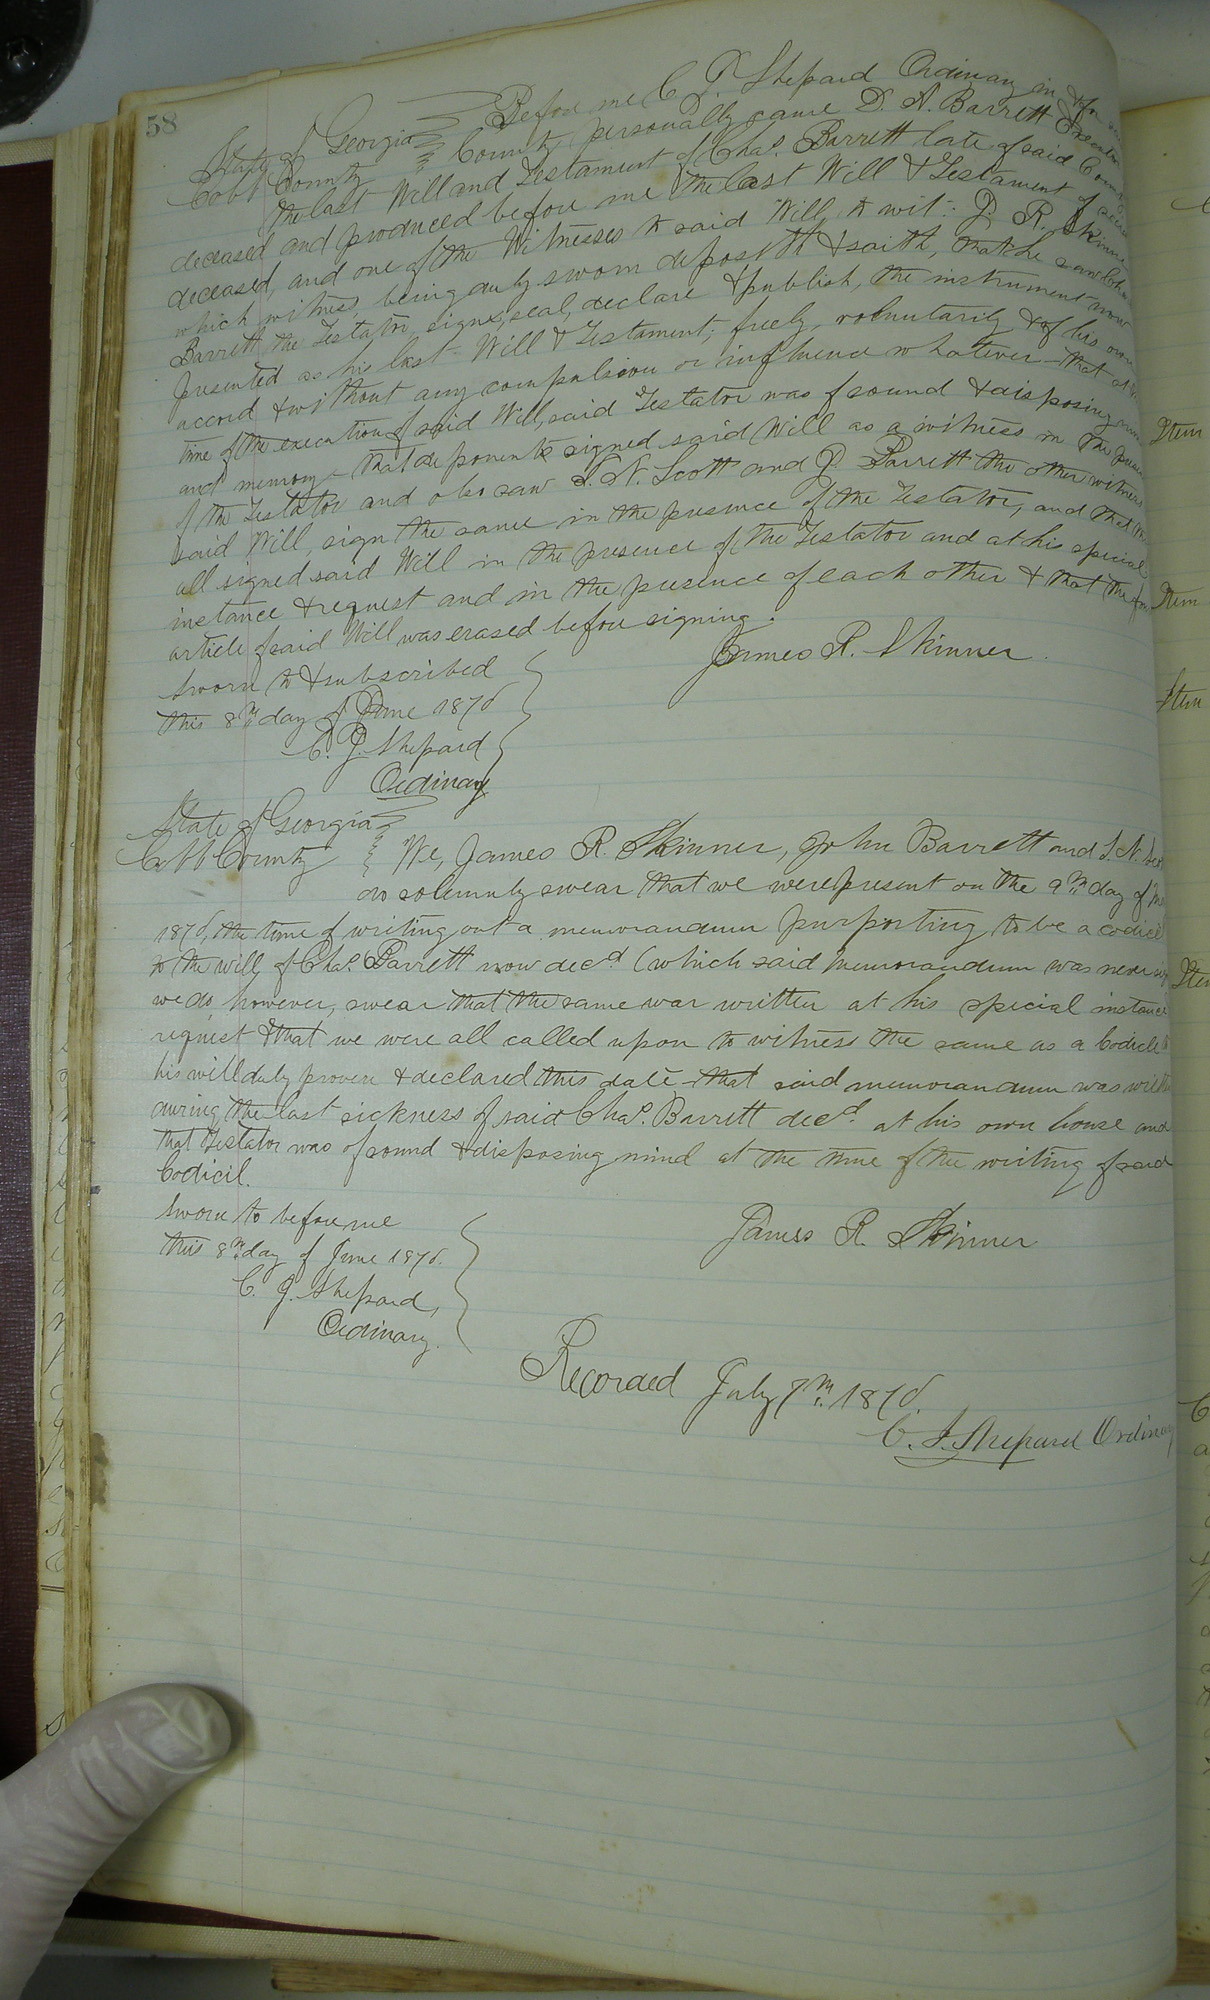 58
State of Georgia Before me C. J. Shepard Ordinary in & for said
Cobb County County personally came D. A. Barrett Executor
the last Will and Testament of Chas. Barrett late of said County
deceased and produced before me the last Will & Testament of said
deceased, and one of the Witnesses to said Will, to wit: J. R. Skinner
which witness, being duly sworn deposeth & saith, that he saw Chas
Barrett the Testator, signe, seal, declare & publish, the instrument now
presented as his last Will & Testament; freely, voluntarily & of his own
accord & without any compulsion or influence whatever - that at the
time of the execution of said Will, said Testator was of sound & disposing mind
and memory - that deponent signed said Will as a witness in the presence
of the Testator and also saw S. N. Scott and J. Barrett the other witnesses
said Will, sign the same in the presence of the Testator, and that they
all signed said Will in the presence of the Testator and at his special
instance & request and in the presence of each other & that the
article of said Will was erased before signing.
Sworn to & subscribed James R. Skinner.
this 8th day of June 1876
C. J. Shepard
Ordinary
State of Georgia
Cobb County We, James R. Skinner, John Barrett and S. N. Scott
do solemnly swear that we were present on the 9th day of
1876, the time of writing out a memorandum purporting to be a codicil
to the will of Chas. Barrett now decd (which said memorandum was never
we do, however, swear that the same was written at his special instance
request & that we were all called upon to witness the same as a Codicil to
his will duly proven & declared this date - that said memorandum was written
during the last sickness of said Chas. Barrett decd. at his own house and
that Testator was of sound & disposing mind at the time of the writing of said
Codicil.
Sworn to before me James R. Skinner
this 8th day of June 1876.
C. J. Shepard,
Ordinary.
Recorded July 7th 1876.
C. J. Shepard Ordinary
Item
Item
Item
Item